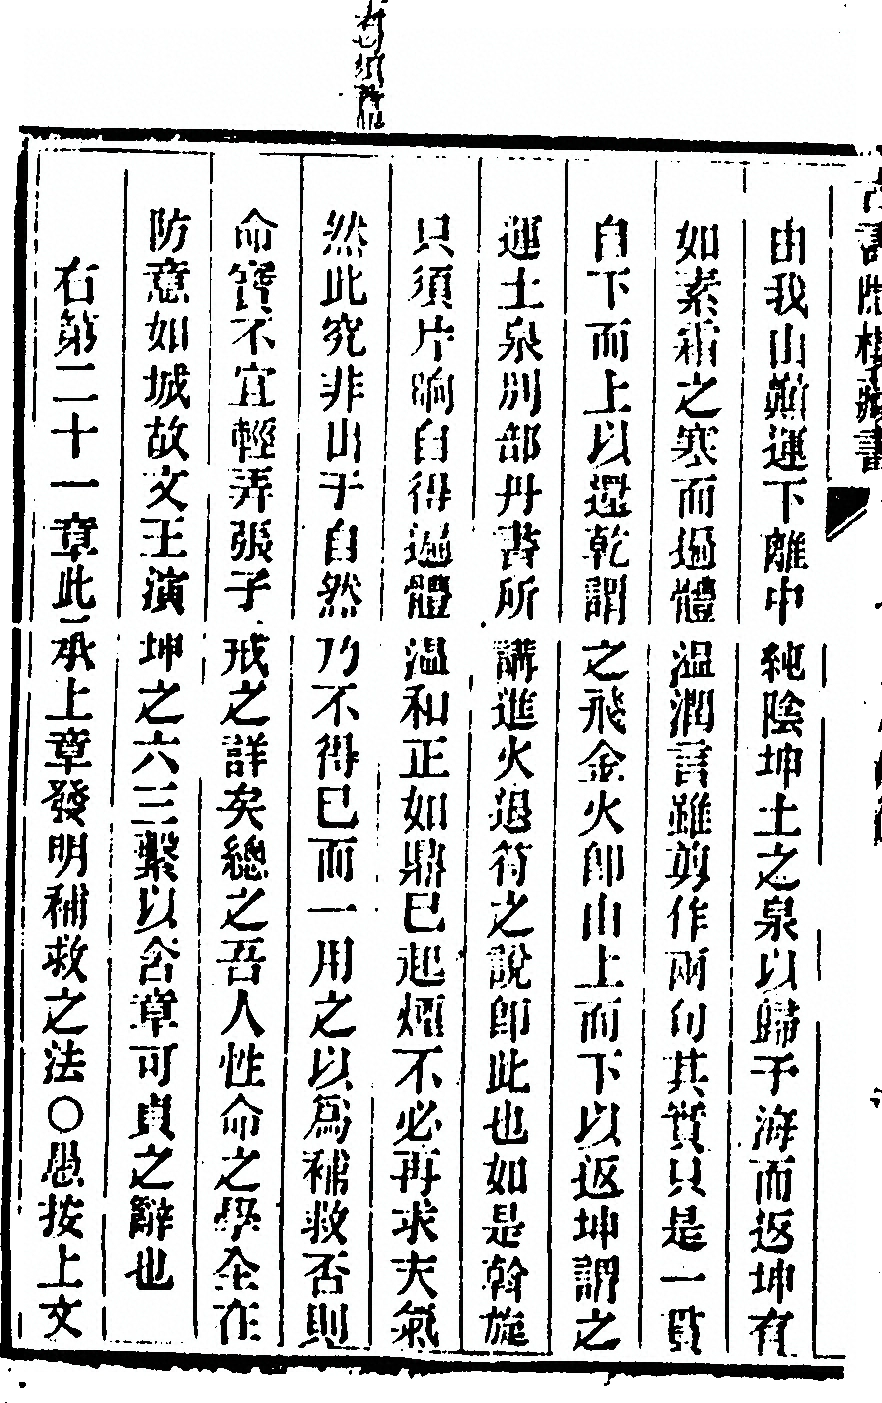 古書隱樓藏書
由我山巔運下離中純陰坤土之泉以歸于海而返坤有
如素霜之寒而過體溫潤言雖剪作兩句其實只是一貫
自下而上以還乾謂之飛金火卽由上而下以返坤謂之
運土泉別部丹書所講進火退符之說卽此也如是斡旋
只須片晌自得遍體溫和正如鼎已起煙不必再求夫氣
然此究非出于自然乃不得已而一用之以爲補救否則
命寶不宜輕弄張子戒之詳矣總之吾人性命之學全在
防意如城故文王演坤之六三繫以含章可貞之辭也
右第二十一章此承上章發明補救之法〇愚按上文